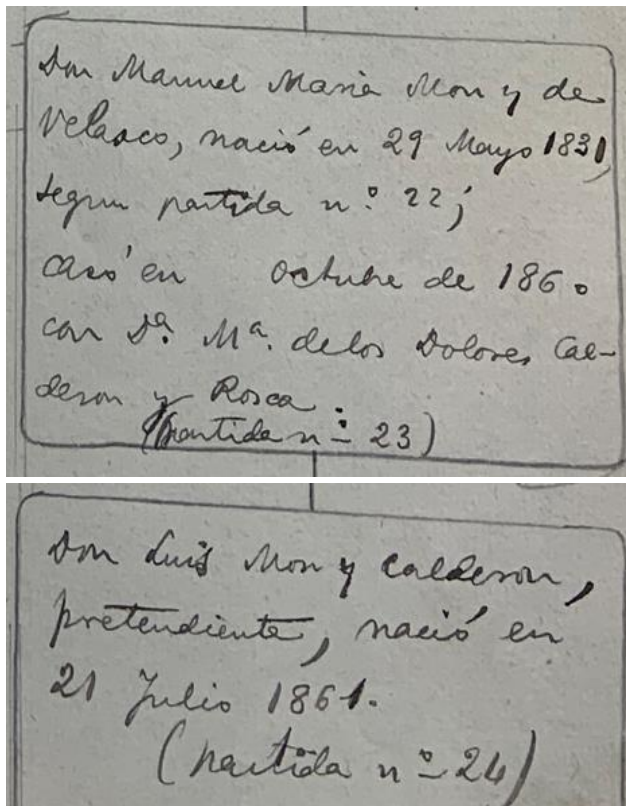 Don Manuel Maria Mon y de
Velasco, nació en 29 Mayo 1831,
segun partida n.º 22;
casó en octubre de 1860
con Dª. Mª. de los Dolores Cal-
deron y Rosca.
(partida nº 23)
Don Luis Mon y Calderon,
pretendiente, nació en
21 Julio 1861.
(partida nº 24)